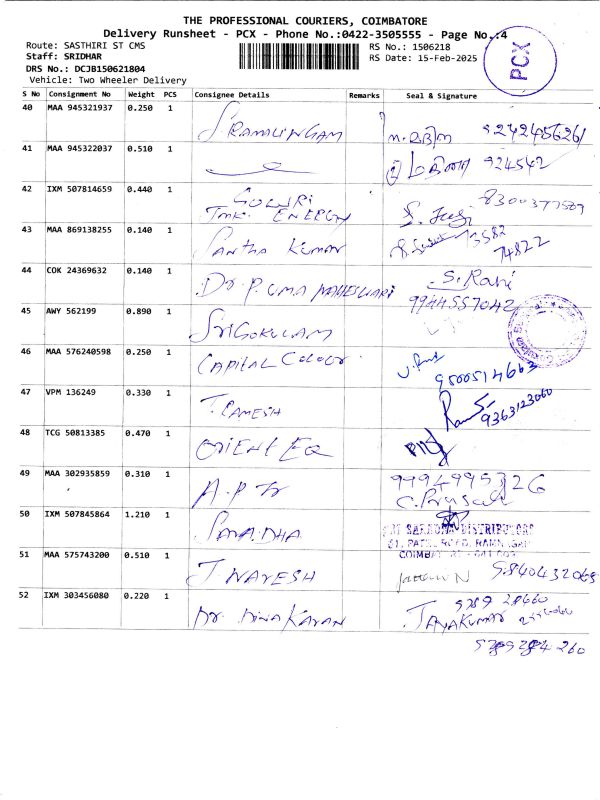 THE PROFESSIONAL COURIERS, COIMBATORE
Delivery Runsheet - PCX - Phone No.:0422-3505555 - Page No.:4
Route: SASTHIRI ST CMS
RS No.: 1506218
Staff: SRIDHAR
RS Date: 15-Feb-2025
DRS No.: DCJB150621804
Vehicle: Two Wheeler Delivery
PCX
S No Consignment No Weight PCS Consignee Details Remarks Seal & Signature
40 MAA 945321937 0.250 1 S. RAMALINGAM 9242456261
41 MAA 945322037 0.510 1 924542
42 IXM 507814659 0.440 1 GOWRI
TMK. ENERGY
43 MAA 869138255 0.140 1 SANTHA KUMAR 73582
74822
44 COK 24369632 0.140 1 Dr P. UMA MAHESWARI S. Rani
9944557042
45 AWY 562199 0.890 1 SRI GOKULAM
46 MAA 576240598 0.250 1 CAPITAL COLOUR 9500514663
47 VPM 136249 0.330 1 T. RAMESH 9363123060
48 TCG 50813385 0.470 1 ORIENT EQ
49 MAA 302935859 0.310 1 9994995326
50 IXM 507845864 1.210 1 DISTRIBUTORS
51 MAA 575743200 0.510 1 9840432065
52 IXM 303456080 0.220 1 Dr. DINAKARAN JAYAKUMAR